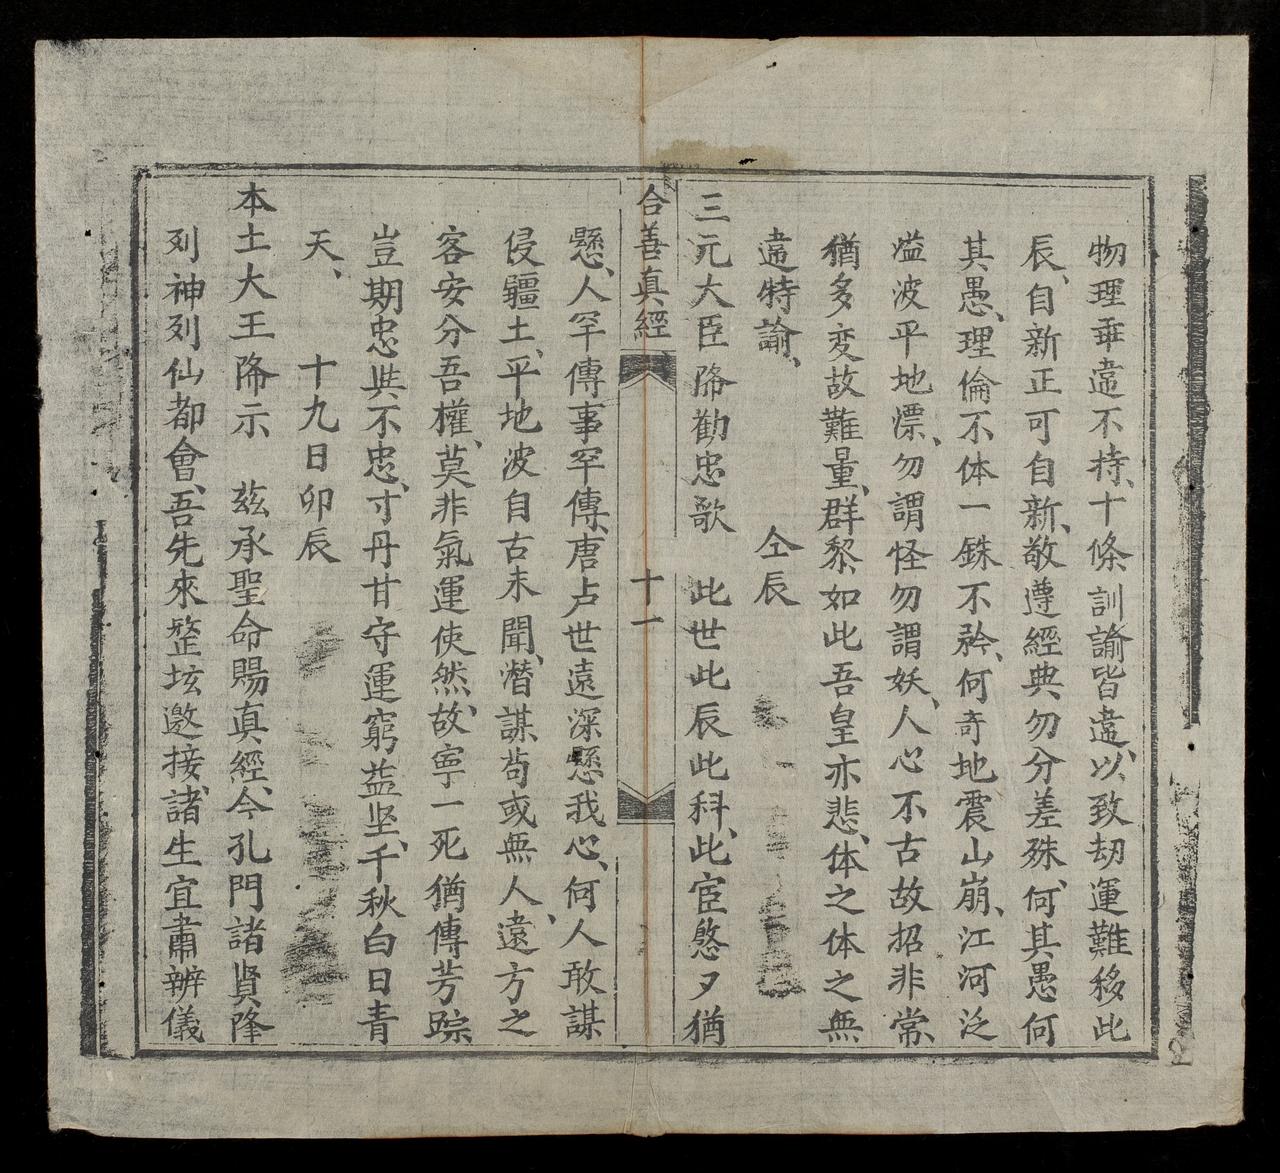 物理乖違不持、十條訓諭皆違、以致劫運難移此
辰、自新正可自新、敬遵經典勿分差殊、何其愚何
其愚、理倫不体一銖不矜、何奇地震山崩、江河泛
溢波平地漂、勿謂怪勿謂妖、人心不古故招非常、
猶多变故難量、群黎如此吾皇亦悲、体之体之無
違特諭、
仝辰
三元大臣降勸忠歌　此世此辰此科、此宦愁夕猶
合善真經
十一
懸、人罕傳事罕傳、唐卢世遠深懸我心、何人敢謀
侵疆土、平地波自古未聞、潛謀苟或無人、遠方之
客安分吾權、莫非氣運使然、故寧一死猶傳芳踪
豈期忠與不忠、寸丹甘守運窮益坚、千秋白日青
天、　十九日卯辰
本土大王降示　茲承聖命賜真經、今孔門諸賢降
列神列仙都會、吾先來整坛邀接、諸生宜肅辦儀